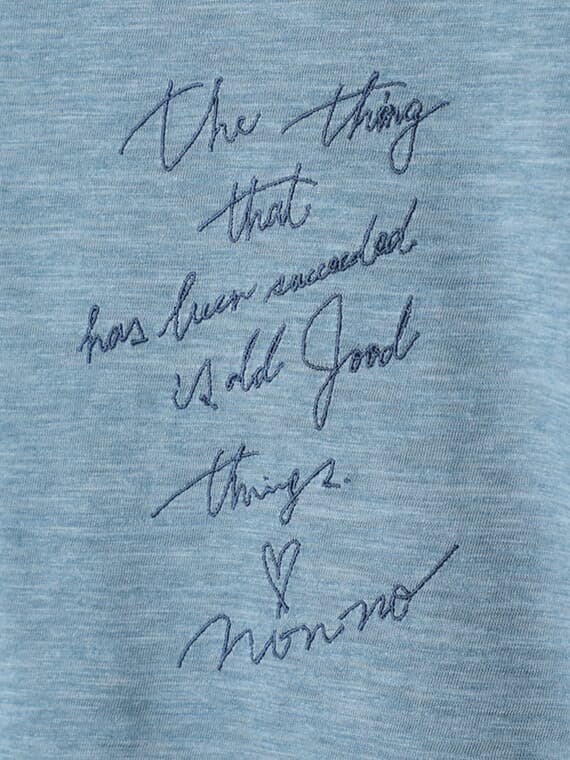 the thing
that
has been succeeded
is old Good
things.
nonno